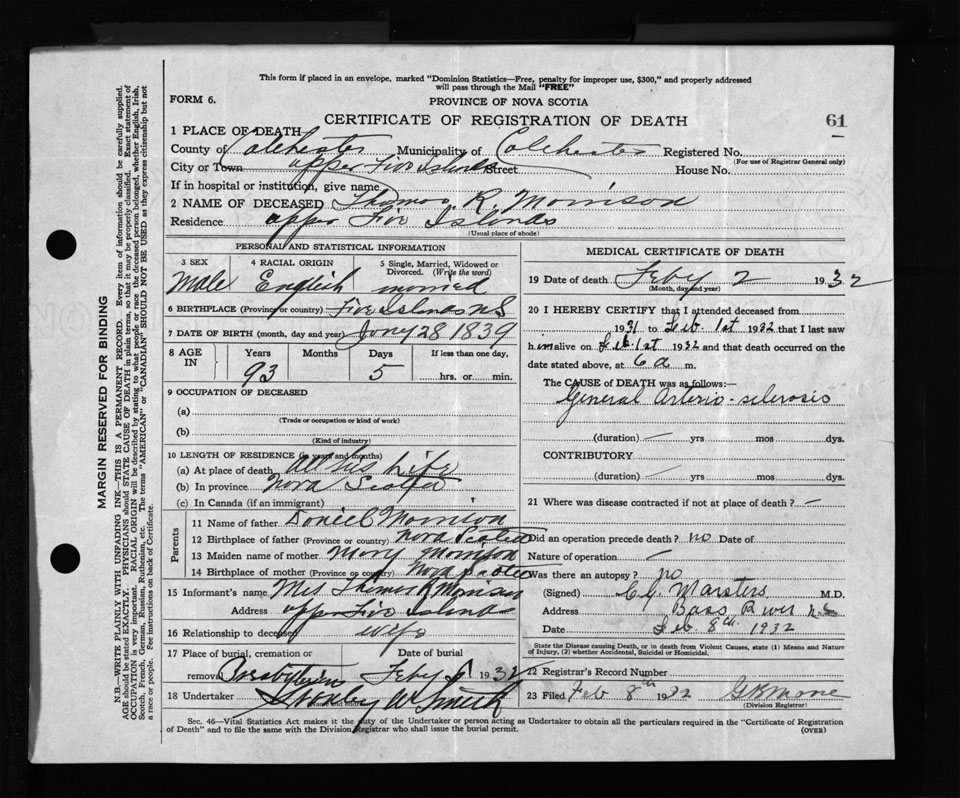 This form if placed in an envelope, marked "Dominion Statistics—Free, penalty for improper use, $300," and properly addressed
will pass through the Mail "FREE"
FORM 6.
PROVINCE OF NOVA SCOTIA
CERTIFICATE OF REGISTRATION OF DEATH
61
1 PLACE OF DEATH—
County of Colchester Municipality of Colchester Registered No.
(For use of Registrar General only)
City or Town upper Five Islands Street House No.
If in hospital or institution, give name
2 NAME OF DECEASED Thomas R. Morrison
Residence upper Five Islands
(Usual place of abode)
PERSONAL AND STATISTICAL INFORMATION
3 SEX 4 RACIAL ORIGIN 5 Single, Married, Widowed or
Divorced. (Write the word)
Male English married
6 BIRTHPLACE (Province or country) Five Islands N S
7 DATE OF BIRTH (month, day and year) Jany 28 1839
8 AGE IN Years Months Days If less than one day,
93 5 hrs. or min.
9 OCCUPATION OF DECEASED
(a)
(Trade or occupation or kind of work)
(b)
(Kind of industry)
10 LENGTH OF RESIDENCE (in years and months)
(a) At place of death All his Life
(b) In province Nova Scotia
(c) In Canada (if an immigrant)
Parents
11 Name of father Daniel Morrison
12 Birthplace of father (Province or country) Nova Scotia
13 Maiden name of mother Mary Morrison
14 Birthplace of mother (Province or country) Nova Scotia
15 Informant's name Mrs Thomas R Morrison
Address upper Five Islands
16 Relationship to deceased wife
17 Place of burial, cremation or Date of burial
removal Presbyterian Feby 1932
18 Undertaker Stanley W Smith
(Name and address)
MEDICAL CERTIFICATE OF DEATH
19 Date of death Feby 2 1932
(Month, day and year)
20 I HEREBY CERTIFY that I attended deceased from
1931 to Feb. 1st 1932 that I last saw
him alive on Feb. 1st 1932 and that death occurred on the
date stated above, at 6 a m.
The CAUSE of DEATH was as follows:—
General Arterio-sclerosis
(duration) — yrs mos dys.
CONTRIBUTORY
(duration) — yrs mos dys.
21 Where was disease contracted if not at place of death? —
Did an operation precede death? no Date of
Nature of operation —
Was there an autopsy? no
(Signed) Marsters M.D.
Address Bass River N.S.
Date Feb 8th. 1932
State the Disease causing Death, or in death from Violent Causes, state (1) Means and Nature
of Injury, (2) whether Accidental, Suicidal or Homicidal.
22 Registrar's Record Number
23 Filed Feb 8th 1932
(Division Registrar)
Sec. 46—Vital Statistics Act makes it the duty of the Undertaker or person acting as Undertaker to obtain all the particulars required in the "Certificate of Registration
of Death" and to file the same with the Division Registrar who shall issue the burial permit.
(OVER)
MARGIN RESERVED FOR BINDING
N.B.—WRITE PLAINLY WITH UNFADING INK—THIS IS A PERMANENT RECORD. Every item of information should be carefully supplied.
AGE should be stated EXACTLY. PHYSICIANS should STATE CAUSE OF DEATH in plain terms, so that it may be properly classified. Exact statement of
OCCUPATION is very important. RACIAL ORIGIN will be described by stating to what people or race the deceased person belonged, whether English, Irish,
Scotch, French, German, Russian, Ruthenian, etc. The terms "AMERICAN" or "CANADIAN" SHOULD NOT BE USED as they express citizenship but not
a race or people. Fee instructions on back of Certificate.